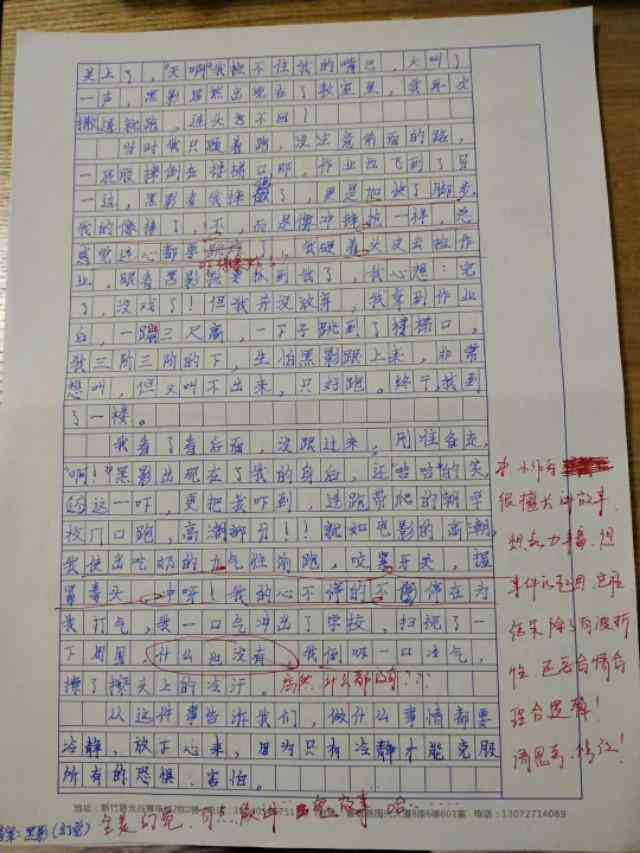 关上了,"天啊"我捂不住我的嘴巴,大叫了
一声,黑影居然出现在了教室里,我再次
撒退就跑,连头也不回!
当时我只顾着跑,没注意前面的路,
一屁股摔倒在楼梯口那,作业也飞到了另
一边,黑影看我摔倒了,更是加快了脚步,
我的像摔了,不,而是像冲锋枪一样,总
感觉连心都要跳了,我硬着头皮去捡作
业,眼看黑影就要抓到我了,我心想:完
了,没戏了!但我并没放弃,我拿到作业
后,一蹦三尺高,一下子跳到了楼梯口,
我三阶三阶的下,生怕黑影跟上来,非常
想叫,但又叫不出来,只好跑。终于,我到
了一楼。
我看了看后面,没跟过来,刚往春走,
"啊!"黑影出现在了我的身后,还"哈哈"的笑,
这一吓,更把我吓到,连跑带爬的朝学
校门口跑,高潮部分!!就如电影的高潮,
我使出吃奶的力气往前跑,咬紧牙关,握
紧拳头,冲呀!我的心不停的不停在为
我打气,我一口气冲出了学校,扫视了一
下周围,什么也没有,我倒吸一口冷气,
擦了擦头上的冷汗。居然什么都没有??
从这件事告诉我们,做什么事情都要
冷静,放下心来,因为只有冷静才能克服
所有的恐惧、害怕。
本作有
很擅长讲故事,
想象力丰富,但
事件的起因、经过
结果除了有波折
性,还要合情合
理合逻辑!
请思考,修改!
电话:13072714069
黑影(幻觉)